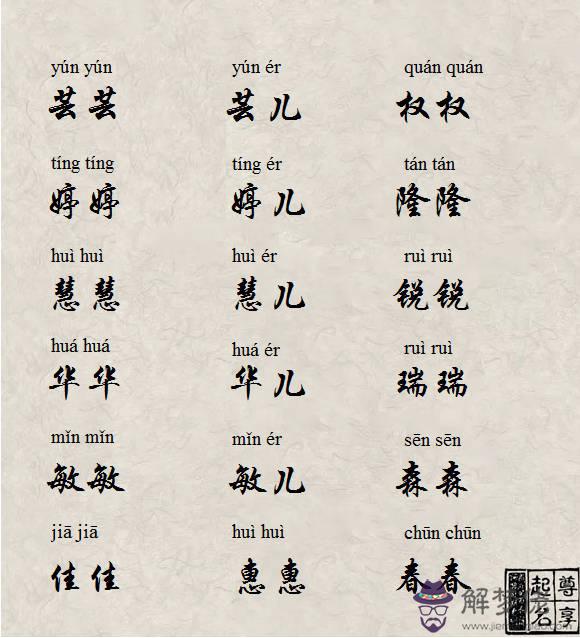 yún yún yún ér quán quán
芸芸 芸儿 权权
tíng tíng tíng ér tán tán
婷婷 婷儿 隆隆
huì huì huì ér ruì ruì
慧慧 慧儿 锐锐
huá huá huá ér ruì ruì
华华 华儿 瑞瑞
mǐn mǐn mǐn ér sēn sēn
敏敏 敏儿 森森
jiā jiā huì huì chūn chūn
佳佳 惠惠 春春
尊享
起名
解梦